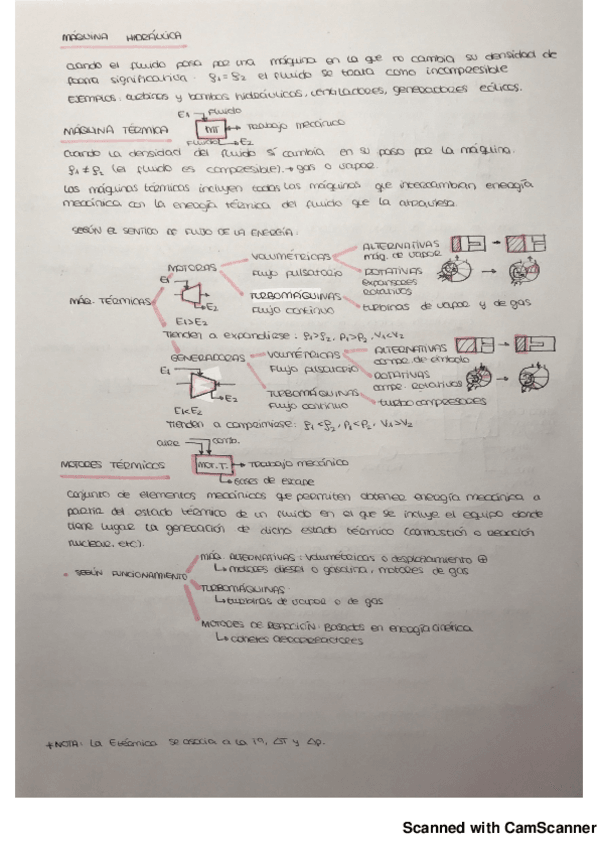 MÁQUINA HIDRÁULICA
cuando el fluido pasa por una máquina en la que no cambia su densidad de
forma significativa. ρ1=ρ2 el fluido se trata como incompresible
EJEMPLOS: turbinas y bombas hidráulicas, ventiladores, generadores eólicos.
E1 Fluido
MÁQUINA TÉRMICA MT Trabajo mecánico
Fluido E2
Cuando la densidad del fluido sí cambia en su paso por la máquina.
ρ1≠ρ2 (el fluido es compresible). → gas o vapor.
Las máquinas térmicas incluyen todas las máquinas que intercambian energía
mecánica con la energía térmica del fluido que la atraviesa.
SEGÚN EL SENTIDO DE FLUJO DE LA ENERGÍA:
MÁQ. TÉRMICAS
MOTORAS
E1
E2
E1>E2
VOLUMÉTRICAS
Flujo pulsatorio
ALTERNATIVAS
máq. de vapor
ROTATIVAS
expansores
rotativos
TURBOMÁQUINAS
Flujo continuo
turbinas de vapor y de gas
Tienden a expandirse: ρ1>ρ2, P1>P2, V1<V2
GENERADORAS
E1
E2
E1<E2
VOLUMÉTRICAS
Flujo pulsatorio
ALTERNATIVAS
compr. de émbolo
ROTATIVAS
compr. rotativos
TURBOMÁQUINAS
Flujo continuo
turbocompresores
Tienden a comprimirse: ρ1<ρ2, P1<P2, V1>V2
aire comb.
MOTORES TÉRMICOS MOT. T. Trabajo mecánico
Gases de escape
Conjunto de elementos mecánicos que permiten obtener energía mecánica a
partir del estado térmico de un fluido en el que se incluye el equipo donde
tiene lugar la generación de dicho estado térmico (combustión o reacción
nuclear, etc).
• SEGÚN FUNCIONAMIENTO
MÁQ. ALTERNATIVAS: Volumétricas o desplazamiento ⊕
↳ motores diesel o gasolina, motores de gas
TURBOMÁQUINAS:
↳ turbinas de vapor o de gas
MOTORES DE REACCIÓN: Basados en energía cinética
↳ cohetes aerorreactores
*NOTA: La Etérmica se asocia a la ΔT y Δp.
Scanned with CamScanner